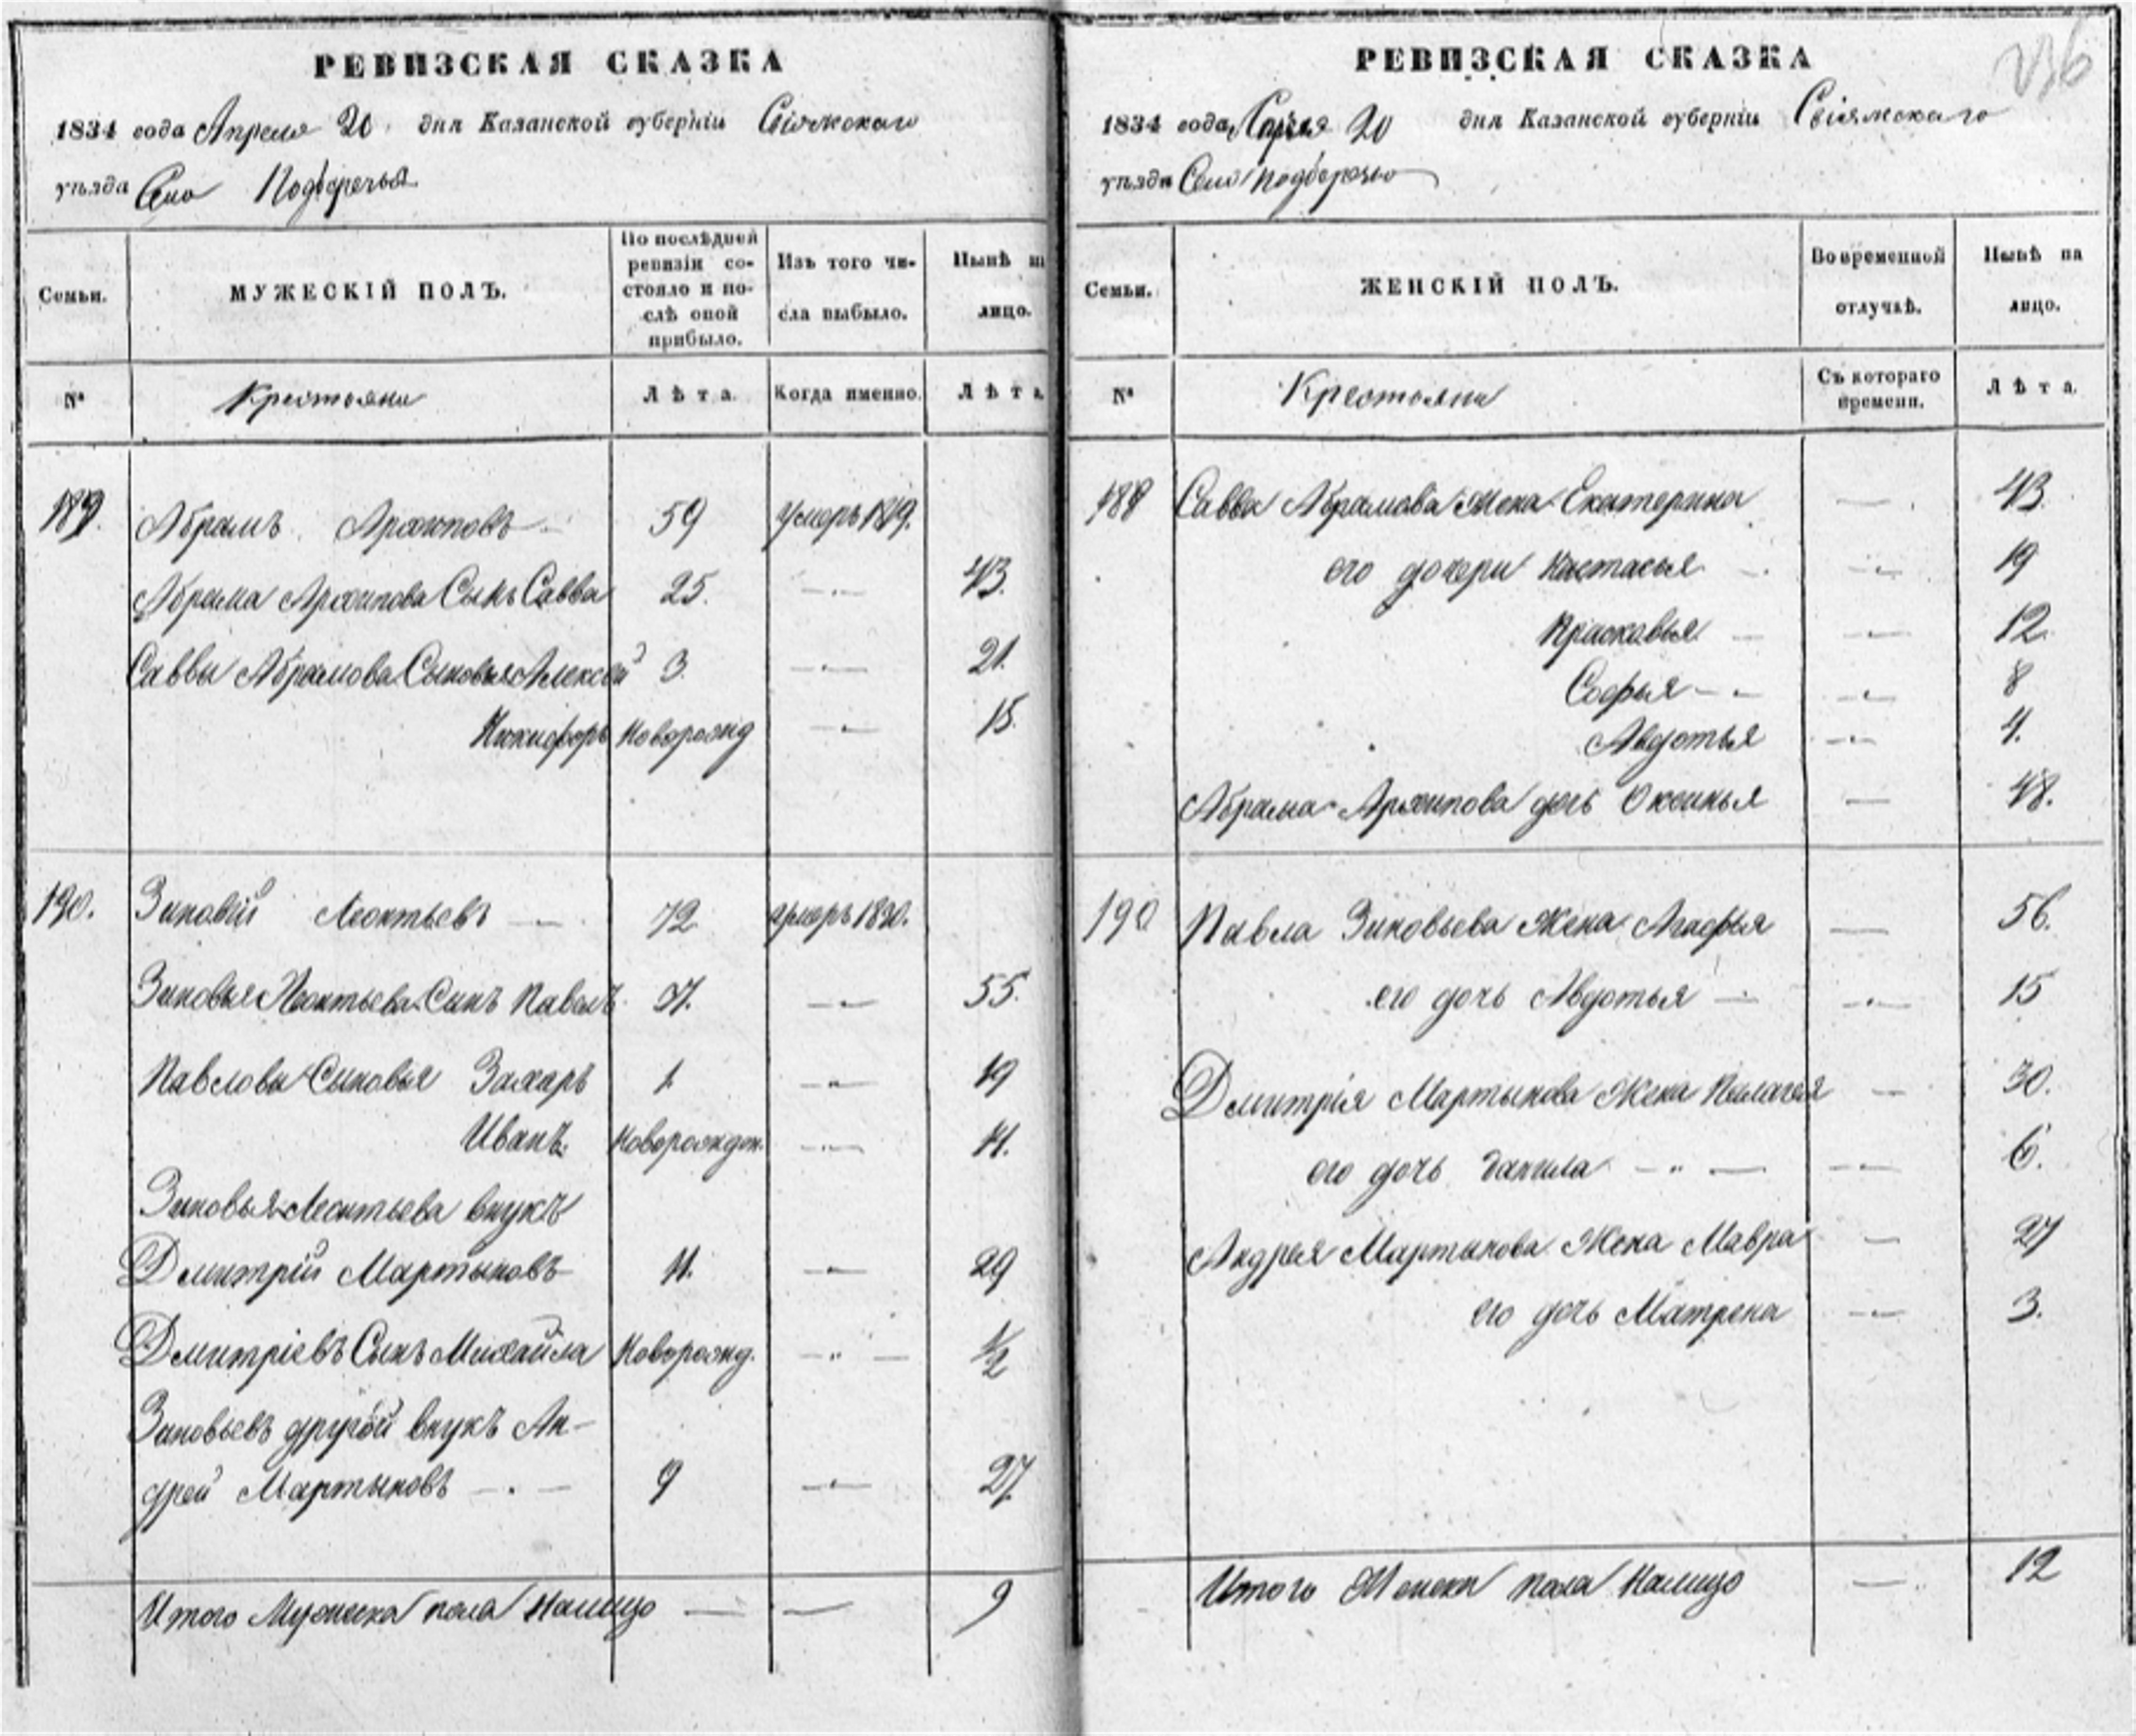 РЕВИЗСКАЯ СКАЗКА
1834 года Апреля 20 дня Казанской губерніи Свіяжскаго
уѣзда Село Подберечья
Семьи.
МУЖЕСКІЙ ПОЛЪ.
По послѣдней ревизіи со-
стояло и по-
слѣ оной
прибыло.
Изъ того чи-
сла выбыло.
Нынѣ на
лицо.
№
Крестьяни
Лѣта.
Когда именно.
Лѣта
189. Абрамъ Архиповъ 59 умеръ 1819.
Абрама Архипова Сынъ Савва 25. 43.
Саввы Абрамова Сыновья Алексей 3. 21.
Никифоръ Новорожд 15.
190. Зиновій Леонтьевъ 72 умеръ 1830.
Зиновья Леонтьева Сынъ Павелъ 37. 55.
Павловы Сыновья Захаръ 1. 19
Иванъ Новорожден. 11.
Зиновья Леонтьева внукъ
Дмитрій Мартыновъ 11. 29
Дмитріевъ Сынъ Михайла Новорожд. 1/2
Зиновьевъ другой внукъ Ан-
дрей Мартыновъ 9 27.
Итого Мужеска пола Налицо 9
РЕВИЗСКАЯ СКАЗКА
1834 года Апреля 20 дня Казанской губерніи Свіяжскаго
уѣзда Село Подберечье
Семьи.
ЖЕНСКІЙ ПОЛЪ.
Во временной
отлучкѣ.
Нынѣ на
лицо.
№
Крестьяни
Съ котораго
времени.
Лѣта.
Саввы Абрамова Жена Екатерина 43.
его дочери Настасья 19
Прасковья 12.
Софья 8
Авдотья 4.
Абрама Архипова дочь Оксинья 48.
190 Павла Зиновьева Жена Агафья 56.
его дочь Авдотья 15
Дмитрія Мартынова Жена Пелагея 30.
его дочь 6.
Андрея Мартынова Жена Мавра 27
его дочь Матрена 3.
Итого Женска пола Налицо 12